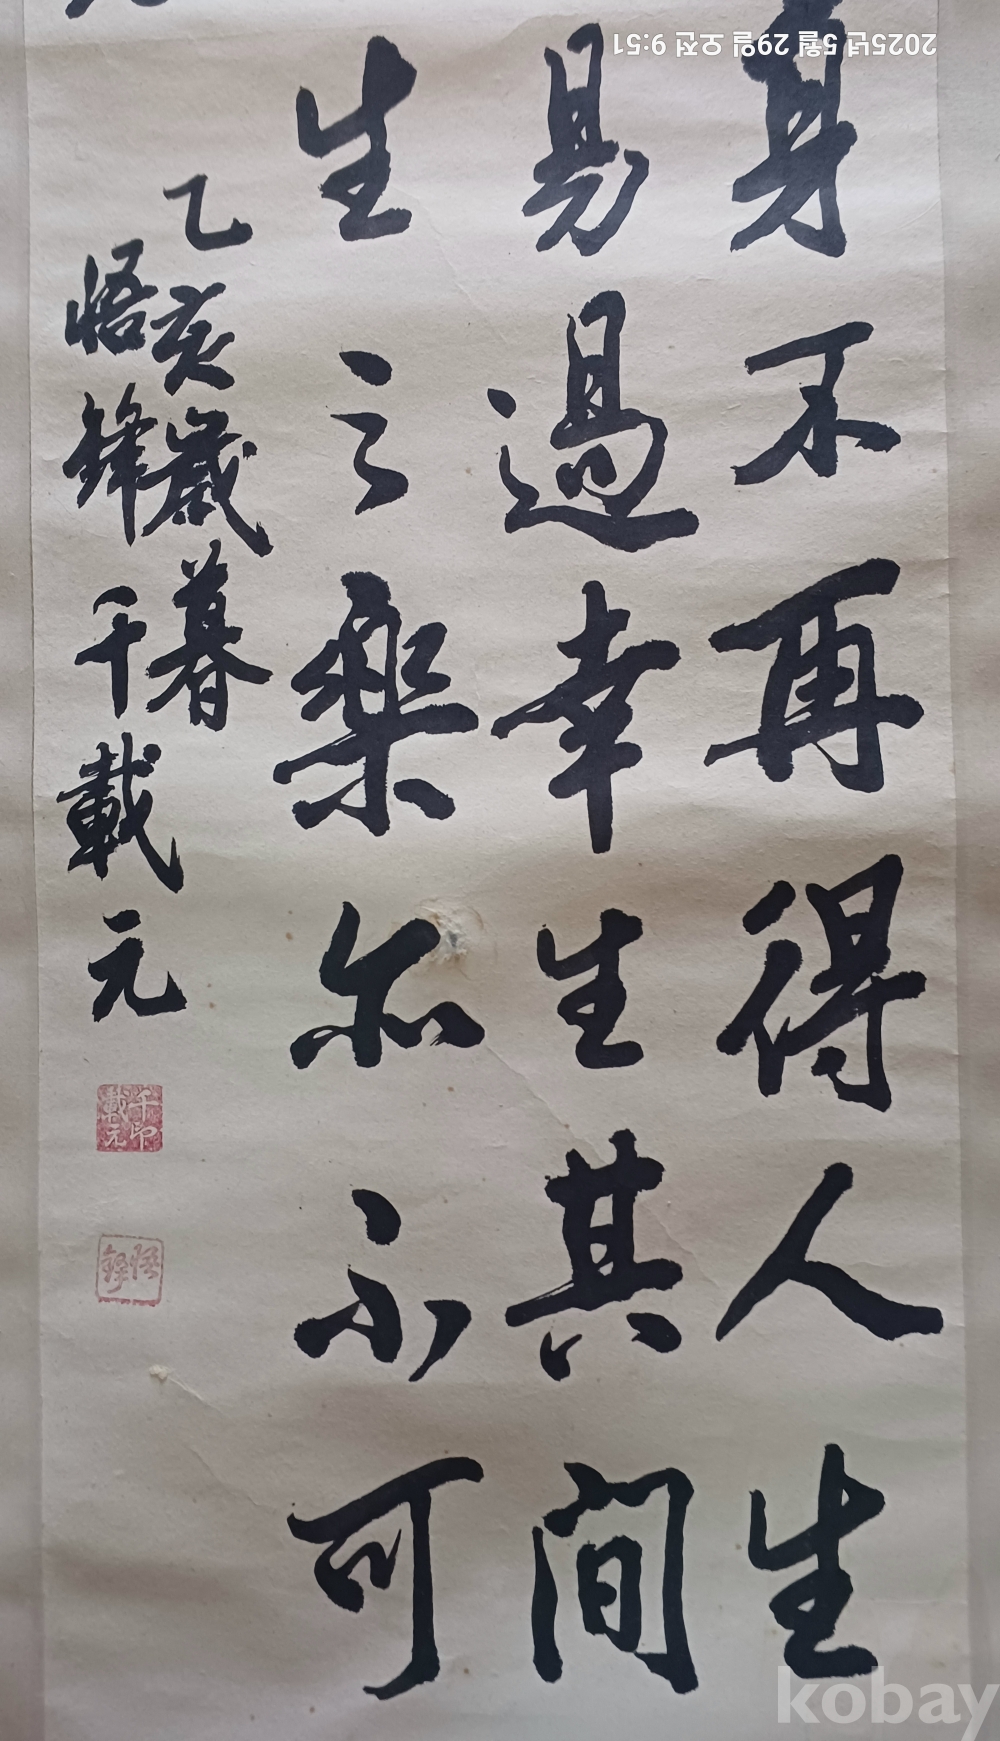 身不再得人生
易過幸生其間
生之樂亦不可
乙亥歲暮
悟鋒千載元
千印載元
悟鋒
2025년 5월 29일 오전 9:51
kobay